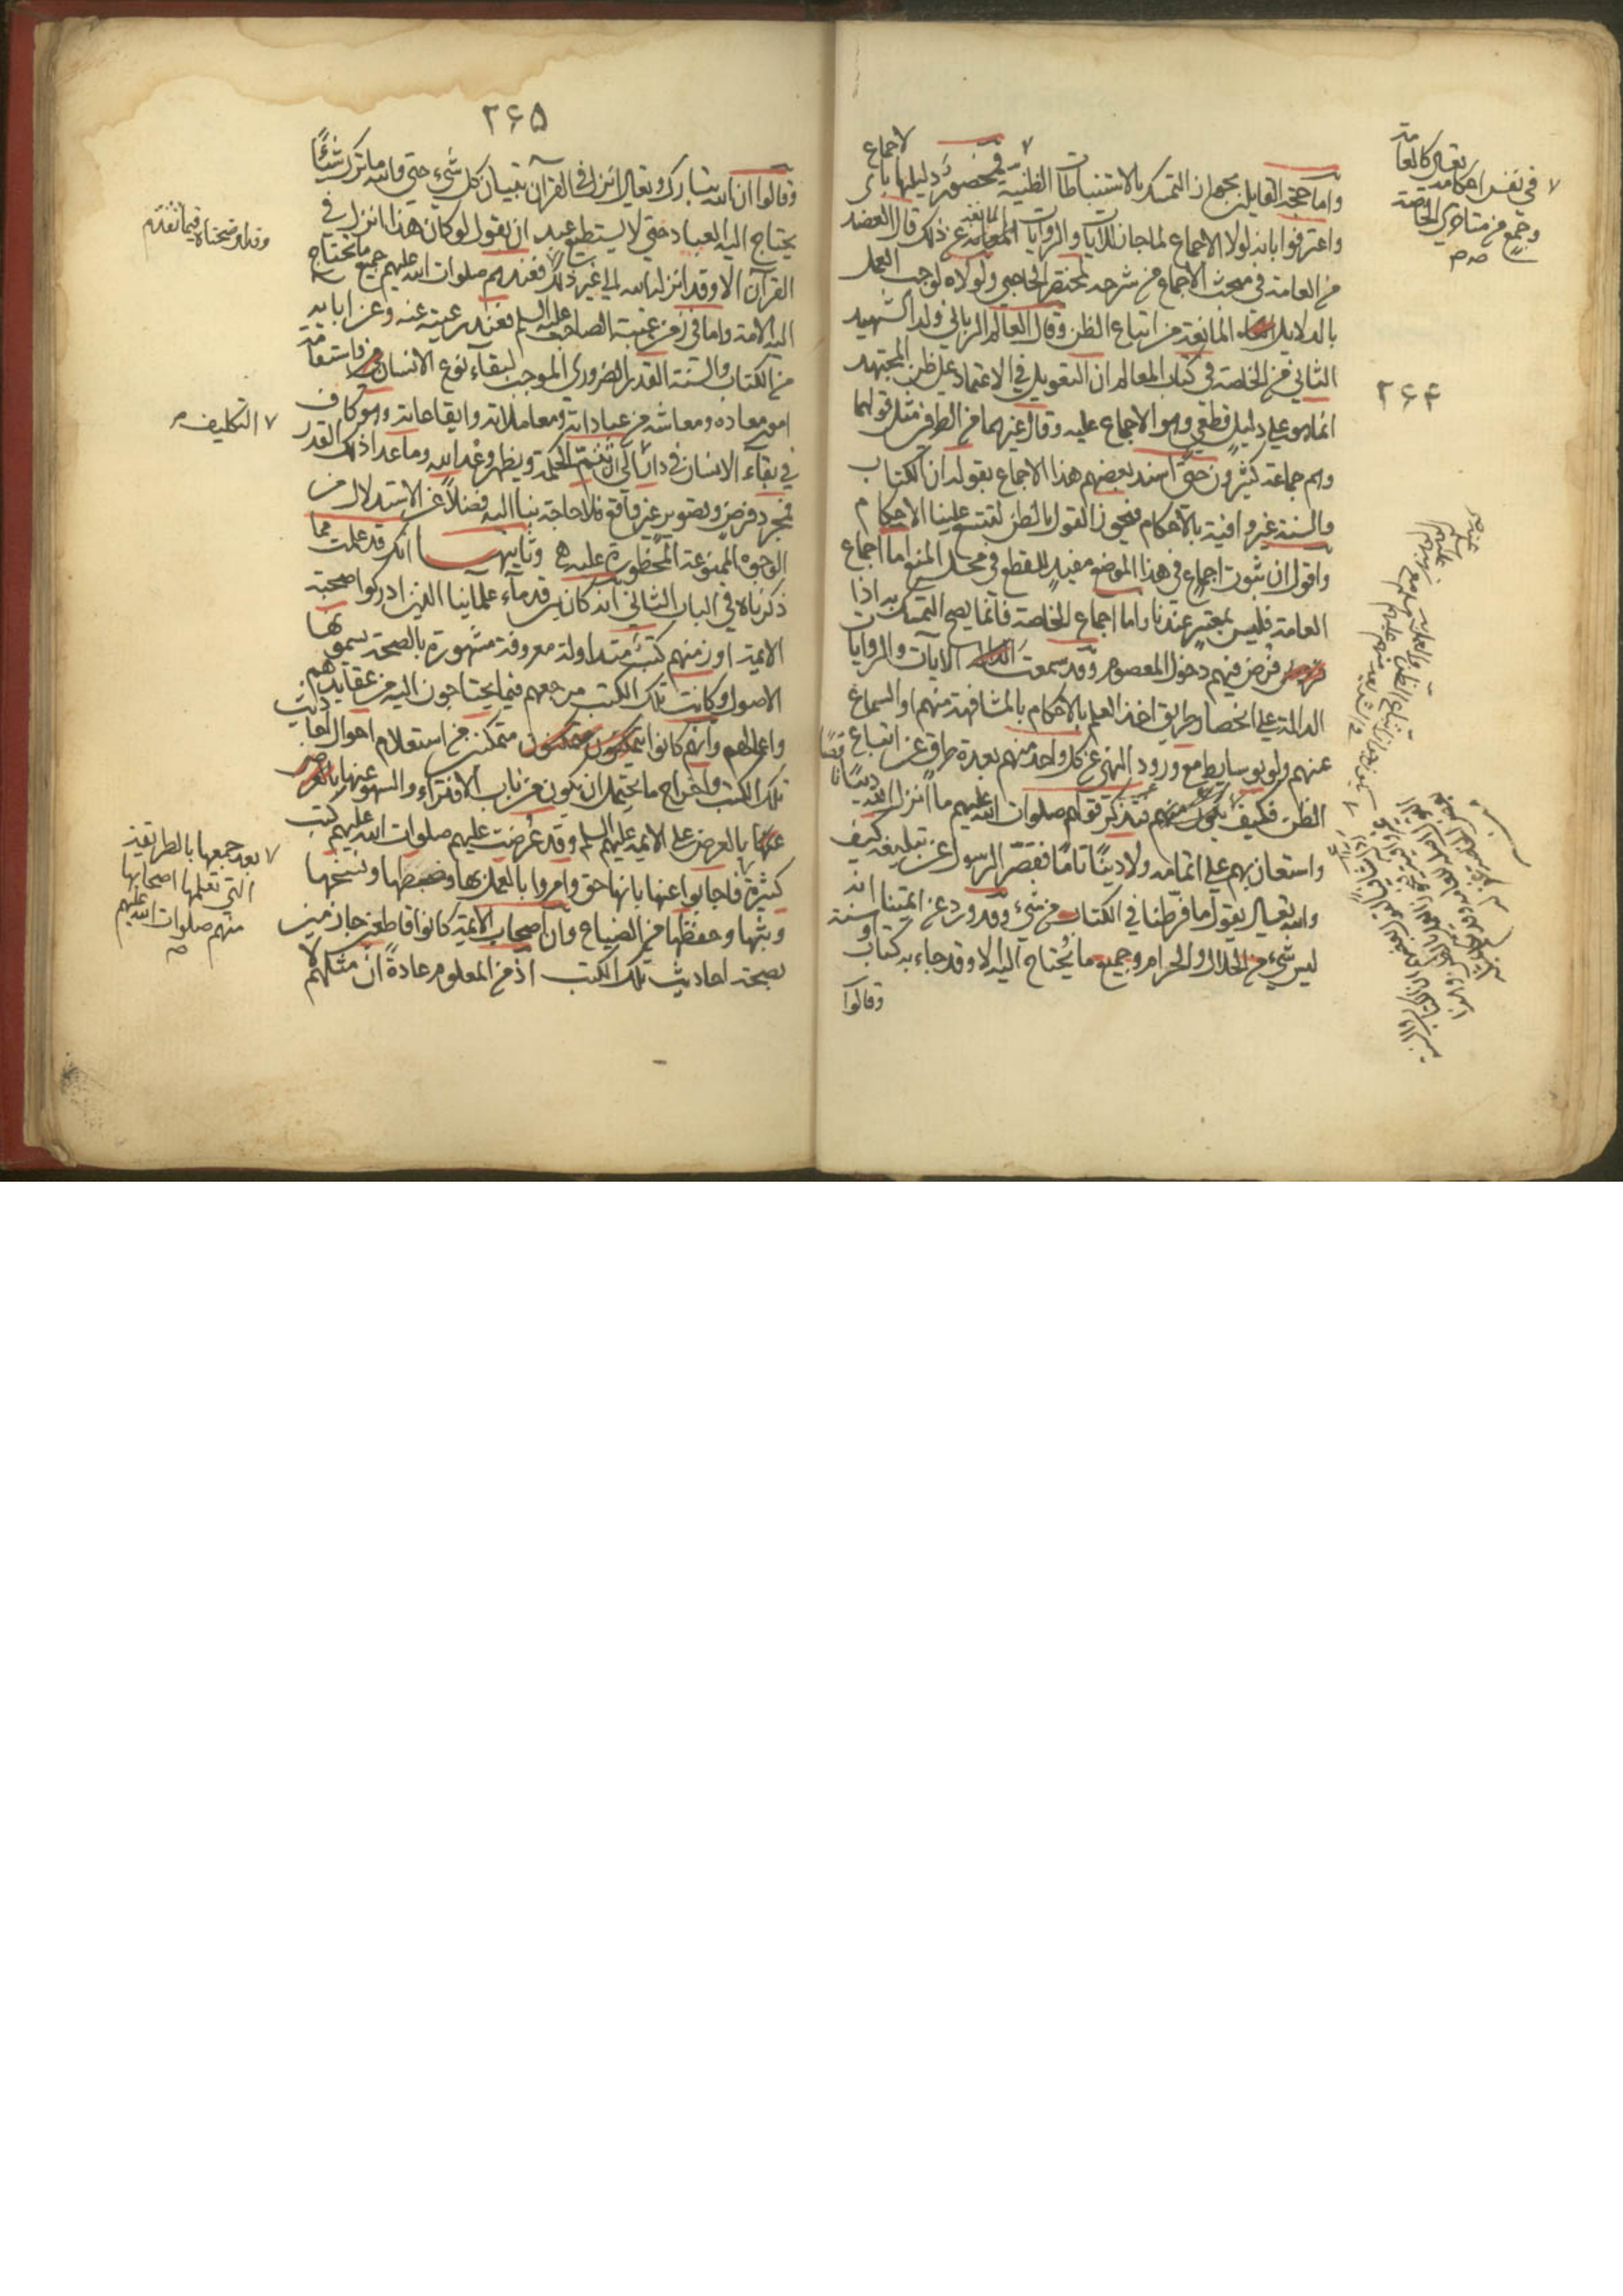 ٢۶۴
واما حجة القايلين بجواز التمسك بالاستنباطات الظنية فمخصوص دليلها بالاجماع
واعترفوا بانه لولا الاجماع لما جاز للآيات والروايات المانعة عن ذلك قال العضد
من العامة في مبحث الاجماع من شرحه لمختصر الحاجبي ولولاه لوجب العمل
بالدلايل المانعة من اتباع الظن وقال العالم الرباني ولد الشهيد
الثاني من الخاصة في كتاب المعالم ان التعويل في الاعتماد على ظن المجتهد
انما هو على دليل قطعي وهو الاجماع عليه وقال غيرهما من الطرفين مثل قولهما
وهم جماعة كثيرون حتى اسند بعضهم هذا الاجماع بقوله ان الكتاب
والسنة غير وافية بالاحكام فيجوز القول بالظن لتتسع علينا الاحكام
واقول ان ثبوت اجماع في هذا الموضع مفيد للقطع في محل المنع اما اجماع
العامة فليس بمعتبر عندنا واما اجماع الخاصة فانما يصح التمسك به اذا
فرض فيهم دخول المعصوم وقد سمعت الآيات والروايات
الدالة على انحصار طريق اخذ العلم بالاحكام بالمشافهة منهم او السماع
عنهم ولو بوسايط مع ورود النهي عن كل واحد منهم بعدة طرق عن اتباع
الظن فكيف يكون منهم فتذكر قولهم صلوات الله عليهم ما انزل الله دينا ناقصا
واستعان بهم على اتمامه ولا دينا تاما فقصر الرسول عن تبليغه كيف
والله تعالى يقول ما فرطنا في الكتاب من شيء وقد ورد عن ائمتنا انه
ليس شيء من الحلال والحرام وجميع ما يحتاج اليه الا وقد جاء به كتاب او سنة
وقالوا
في نفس احكامه تعالى كالعامة
وجمع من متاخري الخاصة
٢۶۵
وقالوا ان الله تبارك وتعالى انزل في القرآن تبيان كل شيء حتى والله ما ترك شيئا
يحتاج اليه العباد حتى لا يستطيع عبد ان يقول لو كان هذا انزل في
القرآن الا وقد انزله الله الى غير ذلك فعندهم صلوات الله عليهم جميع ما يحتاج
اليه الامة واما في زمن غيبة الصاحب عليه السلم فعند رعيته عنه وعن ابايه
من الكتاب والسنة القدر الضروري الموجب لبقاء نوع الانسان واستقامة
امور معاده ومعاشه من عباداته ومعاملاته وايقاعاته وهو كاف
في بقاء الانسان في دار الى ان تتم الحكمة ويظهر وعد الله وما عدا ذلك القدر
فمجرد فرض وتصوير غير واقع فلا حاجة بنا اليه فضلا عن الاستدلال من
الوجوه الممنوعة المحظورة عليه وثانيهما انك قد علمت مما
ذكرناه في الباب الثاني انه كان بين قدماء علمائنا الذين ادركوا صحبة
الائمة او زمنهم كتب متداولة معروفة مشهورة بالصحة يسمونها
الاصول وكانت تلك الكتب مرجعهم فيما يحتاجون اليه من عقايدهم
واعمالهم وانهم كانوا متمكنين من استعلام احوال احاديث
تلك الكتب واخراج ما يحتمل ان يكون من باب الافتراء والسهو عنها
بالعرض على الائمة عليهم السلم وقد عرضت عليهم صلوات الله عليهم كتب
كثيرة فاجابوا عنها بانها حق وامروا بالعمل بها وضبطها ونسخها
وبثها وحفظها من الضياع وان اصحاب الائمة كانوا قاطعين جازمين
بصحة احاديث تلك الكتب اذ من المعلوم عادة ان مثلهم لا
وقد اوضحناه فيما تقدم
التكليف
بعد جمعها بالطريقة
التي تعلمها اصحابها
منهم صلوات الله عليهم